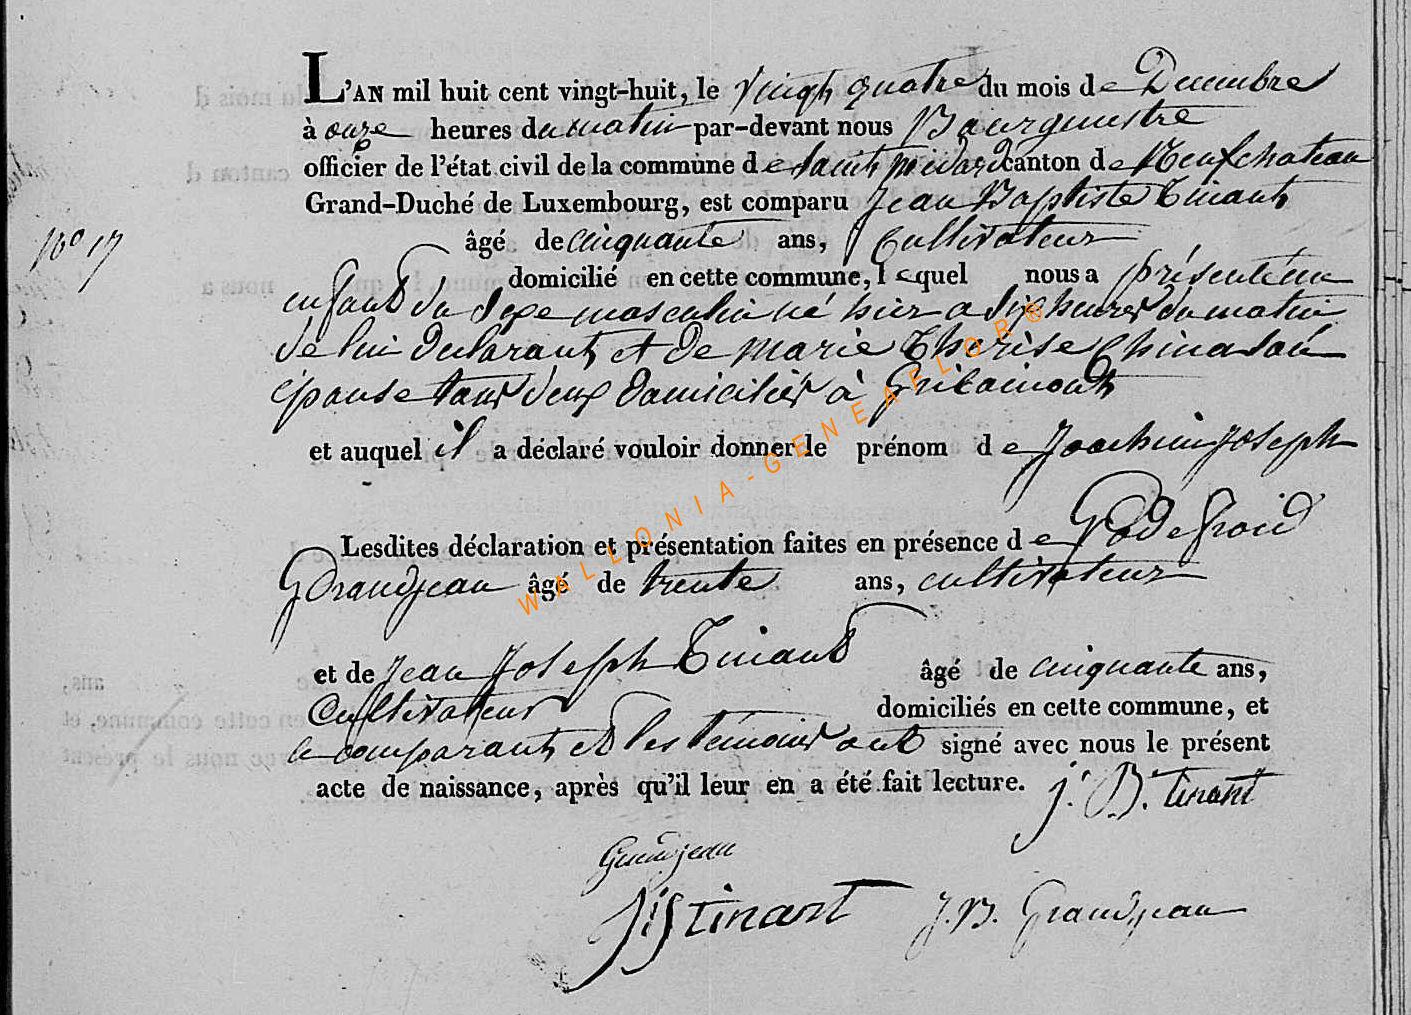 L'AN mil huit cent vingt-huit, le vingt quatre du mois de Decembre
à onze heures du matin par-devant nous Bourguestre
officier de l'état civil de la commune de Saint Médard canton de Neufchateau
Grand-Duché de Luxembourg, est comparu Jean Baptiste Tinant
N° 17
âgé de cinquante ans, cultivateur
domicilié en cette commune, lequel nous a présenté un
enfant du sexe masculin né hier a dix heures du matin
de lui declarant et de marie Therise
épouse tous deux domiciliés à Gribaimont
et auquel il a déclaré vouloir donner le prénom de Joachim Joseph
Lesdites déclaration et présentation faites en présence de Godefroid
Grandjean âgé de trente ans, cultivateur
et de Jean Joseph Tinant âgé de cinquante ans,
Cultivateur domiciliés en cette commune, et
le comparant et les témoins ont signé avec nous le présent
acte de naissance, après qu'il leur en a été fait lecture. J. B. Tinant
Grandjean
JJ Tinant J. B. Grandjean
WALLONIA-GENEAFLOR®